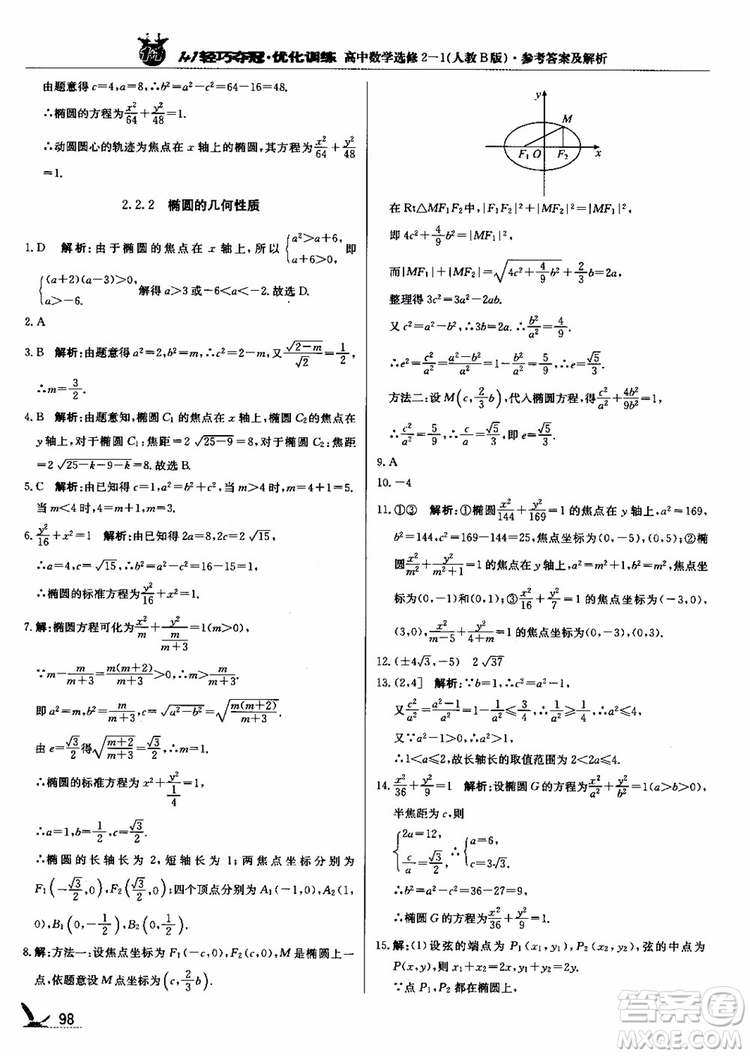 1+1轻巧夺冠·优化训练 高中数学选修2-1(人教B版)·参考答案及解析
由题意得c=4,a=8,∴b²=a²-c²=64-16=48.
∴椭圆的方程为x²/64+y²/48=1.
∴动圆圆心的轨迹为焦点在x轴上的椭圆,其方程为x²/64+y²/48
=1.
2.2.2 椭圆的几何性质
1. D 解析:由于椭圆的焦点在x轴上,所以{a²>a+6, a+6>0, 即
{(a+2)(a-3)>0, a>-6. 解得a>3或-6<a<-2.故选D.
2. A
3. B 解析:由题意得a²=2,b²=m,∴c²=2-m,又√(2-m)/√2=1/2,
∴m=3/2.
4. B 解析:由题意知,椭圆C₁的焦点在x轴上,椭圆C₂的焦点在
y轴上,对于椭圆C₁:焦距=2√(25-9)=8,对于椭圆C₂:焦距
=2√(25-k-9+k)=8.故选B.
5. C 解析:由题意得c=1,a²=b²+c²,当m>4时,m=4+1=5.
当m<4时,4=m+1,∴m=3.
6. y²/16+x²=1 解析:由已知得2a=8,2c=2√15,
∴a=4,c=√15,∴b²=a²-c²=16-15=1,
∴椭圆的标准方程为y²/16+x²=1.
7. 解:椭圆方程可化为x²/m+y²/(m/(m+3))=1,
∵m-m/(m+3)=m(m+2)/(m+3)>0,∴m>m/(m+3).
即a²=m,b²=m/(m+3),c=√(a²-b²)=√(m(m+2)/(m+3)).
由e=√3/2得√((m+2)/(m+3))=√3/2,∴m=1.
∴椭圆的标准方程为x²+y²/(1/4)=1.
∴a=1,b=1/2,c=√3/2.
∴椭圆的长轴长为2,短轴长为1;两焦点坐标分别为
F₁(-√3/2,0),F₂(√3/2,0);四个顶点分别为A₁(-1,0),A₂(1,
0),B₁(0,-1/2),B₂(0,1/2).
8. 解:方法一:设焦点坐标为F₁(-c,0),F₂(c,0),M是椭圆上一
点,依题意设M点坐标为(c,2/3b)
98
y
M
F₁ O F₂ x
在Rt△MF₁F₂中,|F₁F₂|²+|MF₂|²=|MF₁|²,
即4c²+4/9b²=|MF₁|².
而|MF₁|+|MF₂|=√(4c²+4/9b²)+2/3b=2a,
整理得3c²=3a²-2ab.
又c²=a²-b²,3b=2a.∴b²/a²=4/9.
∴e²=c²/a²=(a²-b²)/a²=1-b²/a²=5/9,∴e=√5/3.
方法二:设M(c,2/3b),代入椭圆方程,得c²/a²+4b²/9b²=1,
∴c²/a²=5/9,∴c/a=√5/3,即e=√5/3.
9. A
10. -4
11. ①③ 解析:①椭圆x²/144+y²/169=1的焦点在y轴上,a²=169,
b²=144,c²=169-144=25.焦点坐标为(0,-5),(0,5);②椭
圆x²/m²+y²/(m²+1)=1的焦点在y轴上,c²=m²+1-m²=1,焦点坐
标为(0,-1),(0,1);③x²/16+y²/7=1的焦点坐标为(-3,0),
(3,0),x²/(m-5)+y²/(m+4)=1的焦点坐标为(0,-3),(0,3).
12. (±4√3,-5) 2√37
13. (2,4] 解析:∵b²=1,∴c²=a²-1,
又c²/a²=(a²-1)/a²=1-1/a²≤3/4,∴1/a²≥1/4,∴a²≤4,
又∵a²-1>0,∴a²>1,
∴1<a≤2,故长轴长的取值范围为2<2a≤4.
14. x²/36+y²/9=1 解析:设椭圆G的方程为x²/a²+y²/b²=1(a>b>0),
半焦距为c,则
{2a=12, c/a=√3/2, ∴{a=6, c=3√3.
∴b²=a²-c²=36-27=9,
∴椭圆G的方程为x²/36+y²/9=1.
15. 解:(1)设弦的端点为P₁(x₁,y₁),P₂(x₂,y₂),弦的中点为
P(x,y),则x₁+x₂=2x,y₁+y₂=2y.
∵点P₁、点P₂在椭圆x²+4y²=16上,